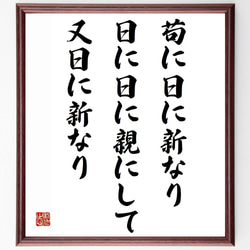 苟に日に新なり
日に日に親にして
又日に新なり